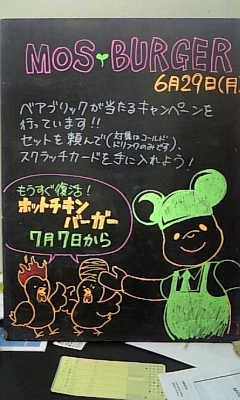 MOS BURGER
6月29日(月)
ベアブリックが当たるキャンペーンを
行っています!!
セットを頼んで(対象はコールドドリンクのみです)、
スクラッチカードを手に入れよう!
もうすぐ復活!
ホットチキン
バーガー
7月7日から